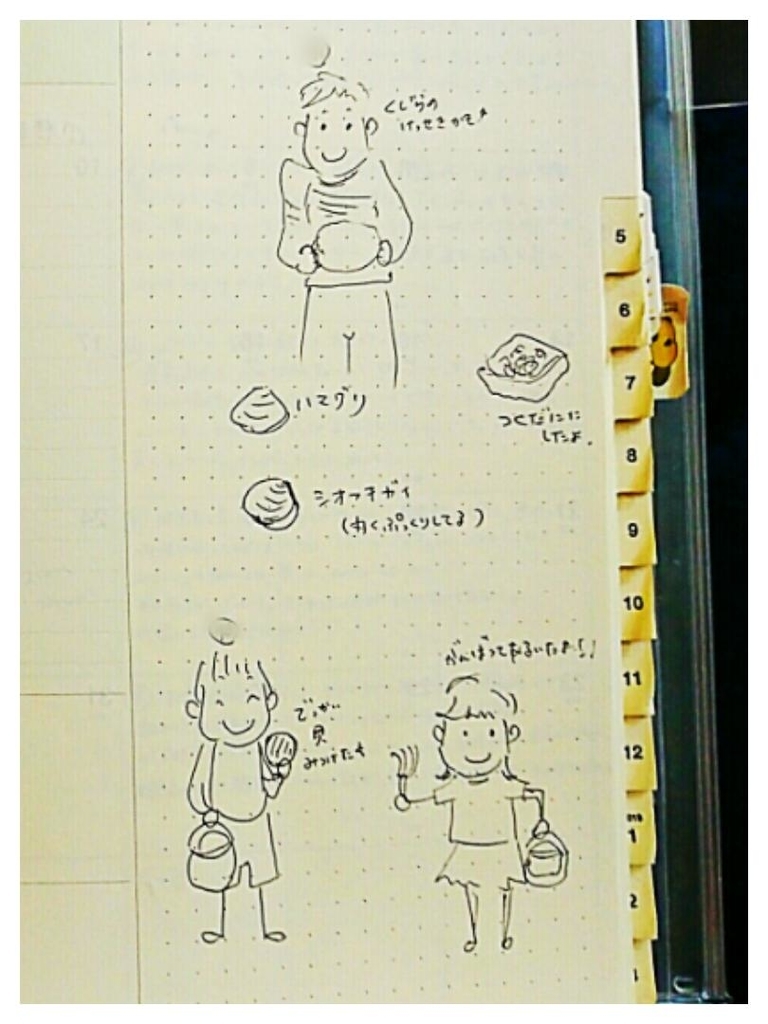 くじらの
ハマグリ
つくだにに
したよ。
シオフキガイ
(丸くぷっくりしてる)
がんばってあるいたよ!!
でっかい
貝
みつけたよ
5
6
7
8
9
10
11
12
1
2